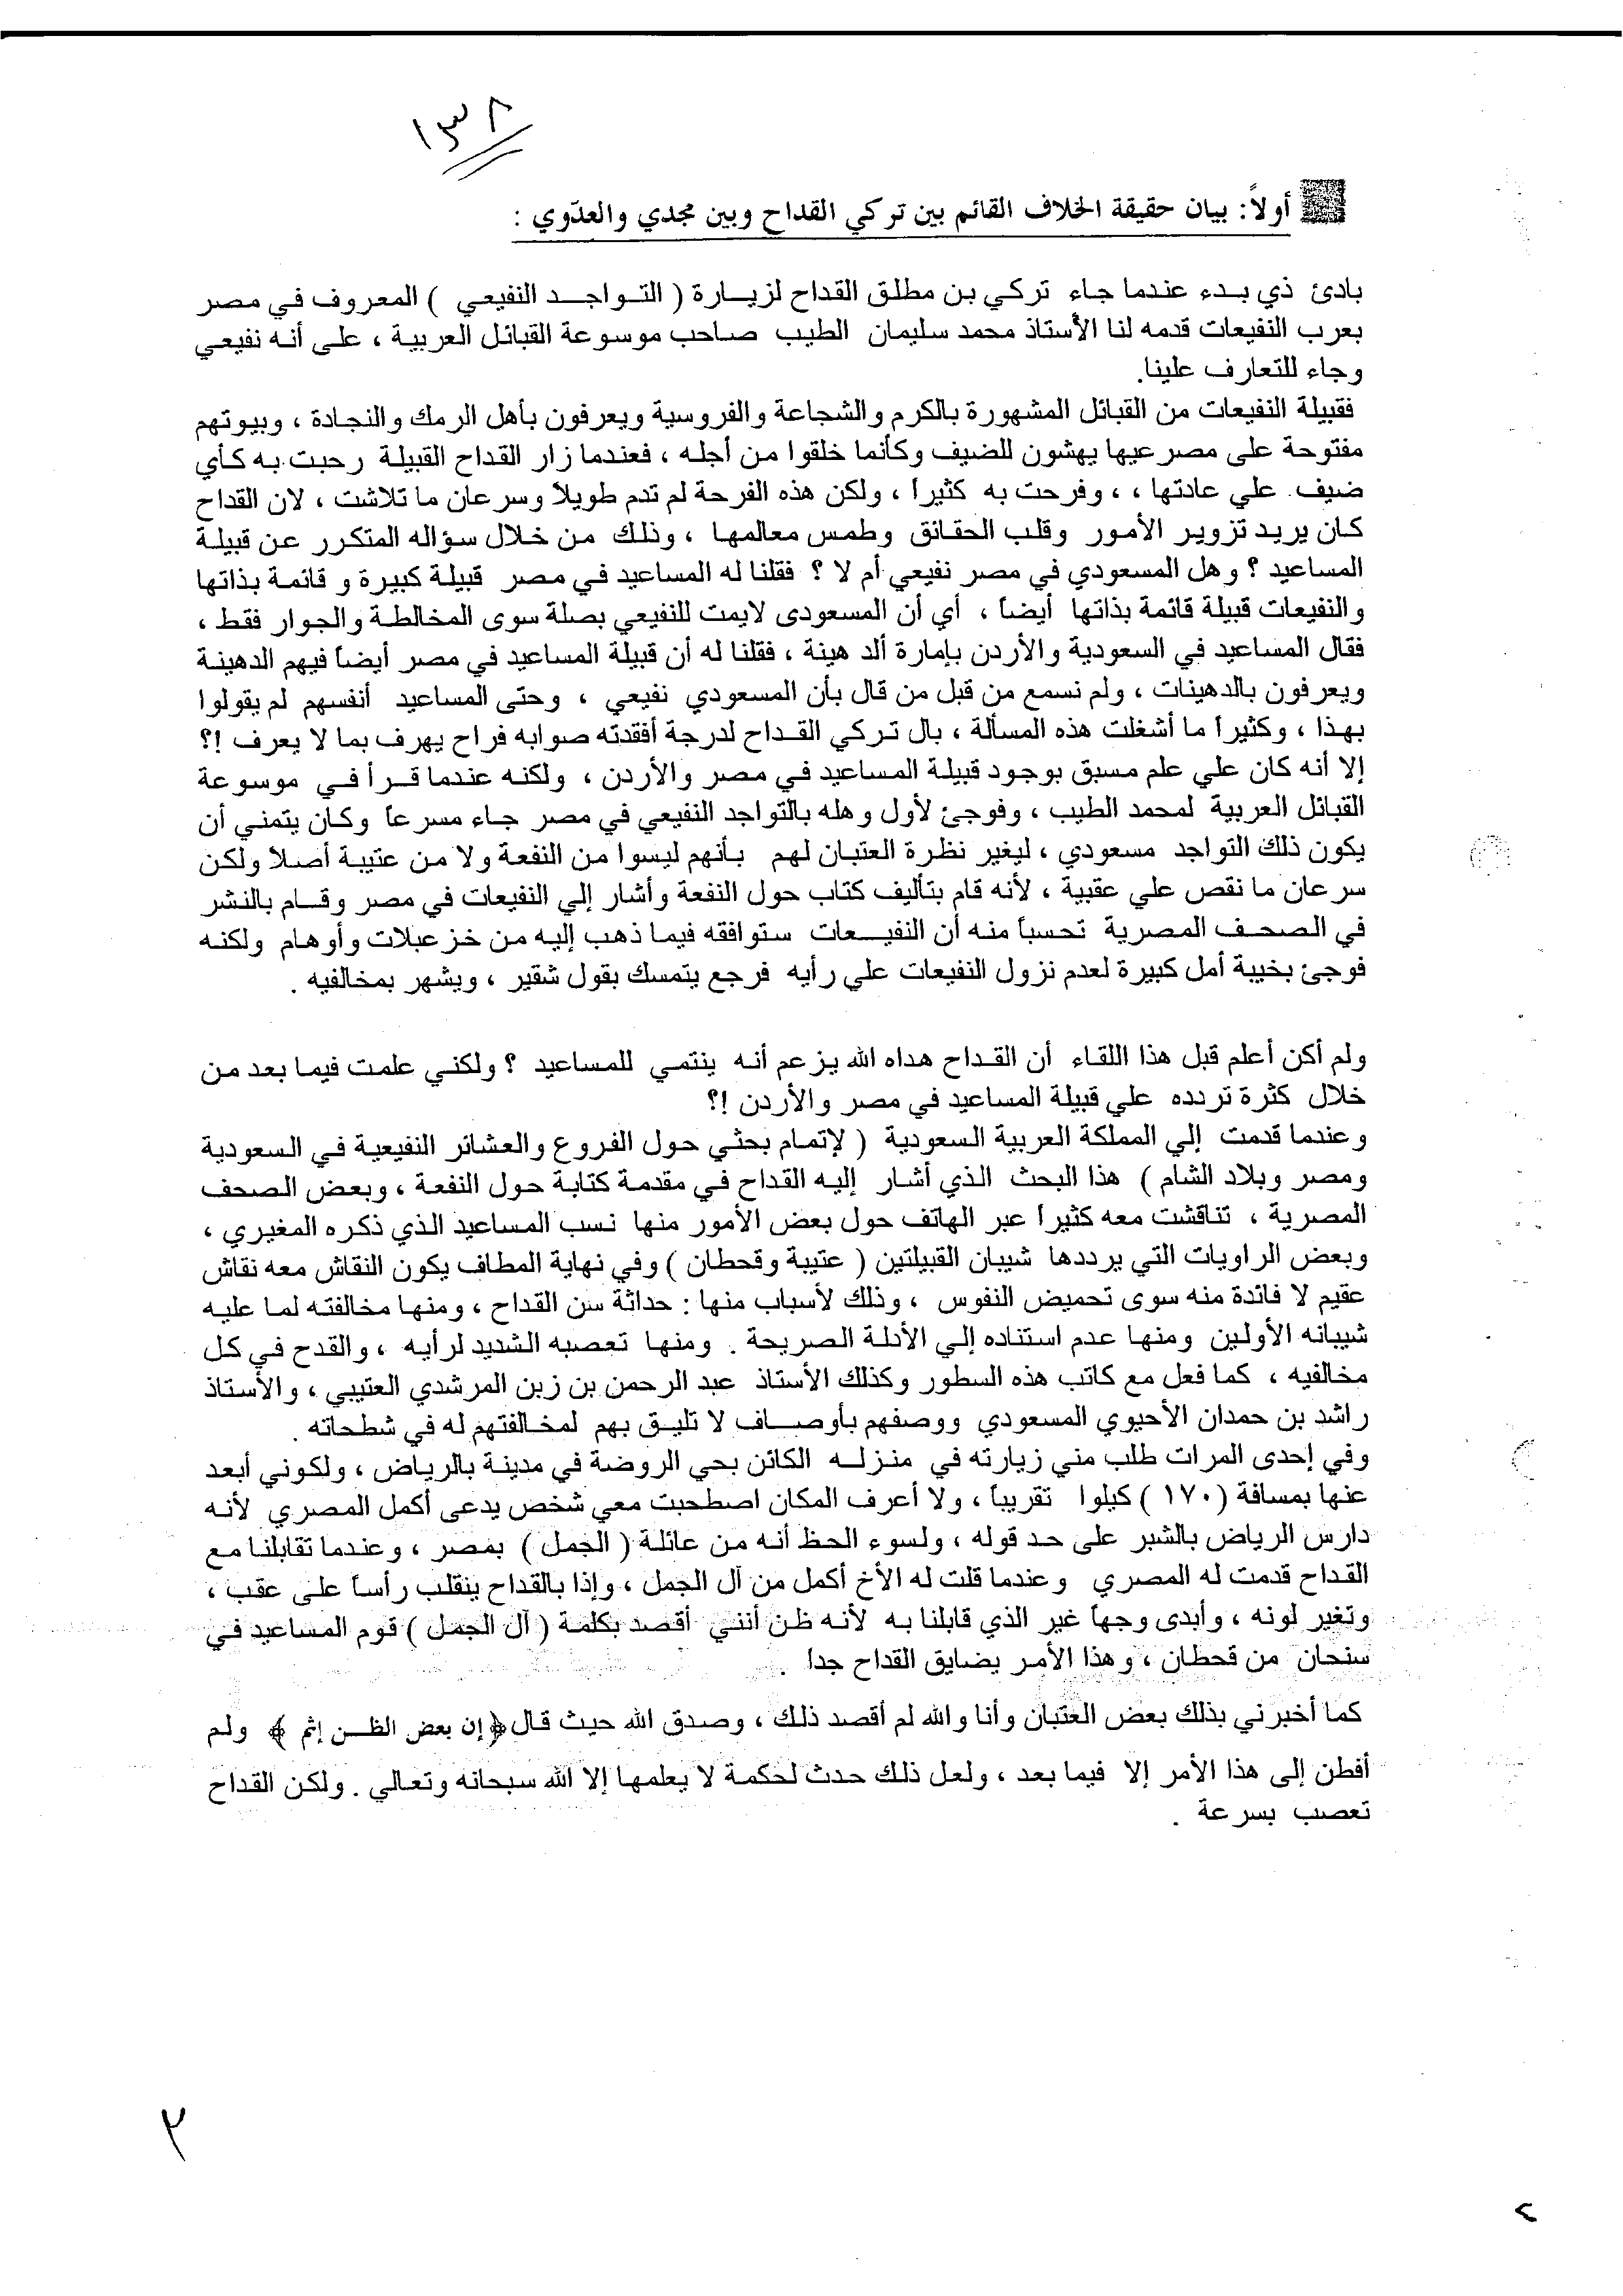 ١٣٨
أولاً: بيان حقيقة الخلاف القائم بين تركي القداح وبين مجدي والعدّوي :
بادئ ذي بدء عندما جاء تركي بن مطلق القداح لزيارة ( التواجد النفيعي ) المعروف في مصر
بعرب النفيعات قدمه لنا الأستاذ محمد سليمان الطيب صاحب موسوعة القبائل العربية ، على أنه نفيعي
وجاء للتعارف علينا.
فقبيلة النفيعات من القبائل المشهورة بالكرم والشجاعة والفروسية ويعرفون بأهل الرمك والنجادة ، وبيوتهم
مفتوحة على مصرعيها يهشون للضيف وكأنما خلقوا من أجله ، فعندما زار القداح القبيلة رحبت به كأي
ضيف علي عادتها ، ، وفرحت به كثيراً ، ولكن هذه الفرحة لم تدم طويلاً وسرعان ما تلاشت ، لان القداح
كان يريد تزوير الأمور وقلب الحقائق وطمس معالمها ، وذلك من خلال سؤاله المتكرر عن قبيلة
المساعيد ؟ وهل المسعودي في مصر نفيعي أم لا ؟ فقلنا له المساعيد في مصر قبيلة كبيرة و قائمة بذاتها
والنفيعات قبيلة قائمة بذاتها أيضاً ، أي أن المسعودى لايمت للنفيعي بصلة سوى المخالطة والجوار فقط ،
فقال المساعيد في السعودية والأردن بإمارة ألد هينة ، فقلنا له أن قبيلة المساعيد في مصر أيضاً فيهم الدهينة
ويعرفون بالدهينات ، ولم نسمع من قبل من قال بأن المسعودي نفيعي ، وحتى المساعيد أنفسهم لم يقولوا
بهذا ، وكثيراً ما أشغلت هذه المسألة ، بال تركي القداح لدرجة أفقدته صوابه فراح يهرف بما لا يعرف !؟
إلا أنه كان علي علم مسبق بوجود قبيلة المساعيد في مصر والأردن ، ولكنه عندما قرأ في موسوعة
القبائل العربية لمحمد الطيب ، وفوجئ لأول وهله بالتواجد النفيعي في مصر جاء مسرعاً وكان يتمني أن
يكون ذلك التواجد مسعودي ، ليغير نظرة العتبان لهم بأنهم ليسوا من النفعة ولا من عتيبة أصلا ولكن
سرعان ما نقص علي عقبية ، لأنه قام بتأليف كتاب حول النفعة وأشار إلي النفيعات في مصر وقام بالنشر
في الصحف المصرية تحسباً منه أن النفيعات ستوافقه فيما ذهب إليه من خزعبلات وأوهام ولكنه
فوجئ بخيبة أمل كبيرة لعدم نزول النفيعات علي رأيه فرجع يتمسك بقول شقير ، ويشهر بمخالفيه .
ولم أكن أعلم قبل هذا اللقاء أن القداح هداه الله يزعم أنه ينتمي للمساعيد ؟ ولكني علمت فيما بعد من
خلال كثرة تردده علي قبيلة المساعيد في مصر والأردن !؟
وعندما قدمت إلي المملكة العربية السعودية ( لإتمام بحثي حول الفروع والعشائر النفيعية في السعودية
ومصر وبلاد الشام ) هذا البحث الذي أشار إليه القداح في مقدمة كتابة حول النفعة ، وبعض الصحف
المصرية ، تناقشت معه كثيراً عبر الهاتف حول بعض الأمور منها نسب المساعيد الذي ذكره المغيري ،
وبعض الراويات التي يرددها شيبان القبيلتين ( عتيبة وقحطان ) وفي نهاية المطاف يكون النقاش معه نقاش
عقيم لا فائدة منه سوى تحميض النفوس ، وذلك لأسباب منها : حداثة سن القداح ، ومنها مخالفته لما عليه
شيبانه الأولين ومنها عدم استناده إلي الأدلة الصريحة . ومنها تعصبه الشديد لرأيه ، والقدح في كل
مخالفيه ، كما فعل مع كاتب هذه السطور وكذلك الأستاذ عبد الرحمن بن زبن المرشدي العتيبي ، والأستاذ
راشد بن حمدان الأحيوي المسعودي ووصفهم بأوصاف لا تليق بهم لمخالفتهم له في شطحاته .
وفي إحدى المرات طلب مني زيارته في منزله الكائن بحي الروضة في مدينة بالرياض ، ولكوني أبعد
عنها بمسافة ( ١٧٠ ) كيلوا تقريباً ، ولا أعرف المكان اصطحبت معي شخص يدعى أكمل المصري لأنه
دارس الرياض بالشبر على حد قوله ، ولسوء الحظ أنه من عائلة ( الجمل ) بمصر ، وعندما تقابلنا مع
القداح قدمت له المصري وعندما قلت له الأخ أكمل من آل الجمل ، وإذا بالقداح ينقلب رأساً على عقب ،
وتغير لونه ، وأبدى وجهاً غير الذي قابلنا به لأنه ظن أنني أقصد بكلمة ( آل الجمل ) قوم المساعيد في
سنحان من قحطان ، وهذا الأمر يضايق القداح جدا .
كما أخبرني بذلك بعض العتبان وأنا والله لم أقصد ذلك ، وصدق الله حيث قال ﴿إن بعض الظن إثم ﴾ ولم
أفطن إلى هذا الأمر إلا فيما بعد ، ولعل ذلك حدث لحكمة لا يعلمها إلا الله سبحانه وتعالي . ولكن القداح
تعصب بسرعة .
٢